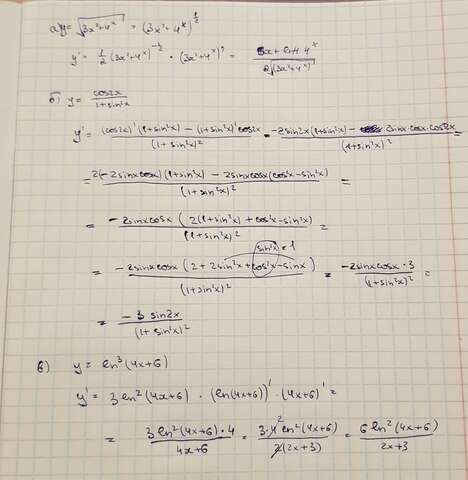 а) y = √(3x² + 4ˣ) = (3x² + 4ˣ)^½
y' = ½ (3x² + 4ˣ)^-½ · (3x² + 4ˣ)' = (6x + ln4 · 4ˣ) / (2√(3x² + 4ˣ))
б) y = cos2x / (1 + sin²x)
y' = ((cos2x)' (1 + sin²x) − (1 + sin²x)' cos2x) / (1 + sin²x)² = (−2sin2x (1 + sin²x) − 2sinx·cosx·cos2x) / (1 + sin²x)² =
= (2(−2sinxcosx)(1 + sin²x) − 2sinxcosx(cos²x − sin²x)) / (1 + sin²x)² =
= (−2sinxcosx (2(1 + sin²x) + cos²x − sin²x)) / (1 + sin²x)² =
sin²x = 1
= (−2sinxcosx (2 + 2sin²x + cos²x − sinx)) / (1 + sin²x)² = (−2sinxcosx · 3) / (1 + sin²x)² =
= (−3 sin2x) / (1 + sin²x)²
в) y = ln³(4x+6)
y' = 3ln²(4x+6) · (ln(4x+6))' · (4x+6)' =
= (3ln²(4x+6) · 4) / (4x+6) = (3·4² ln²(4x+6)) / (2(2x+3)) = (6ln²(4x+6)) / (2x+3)